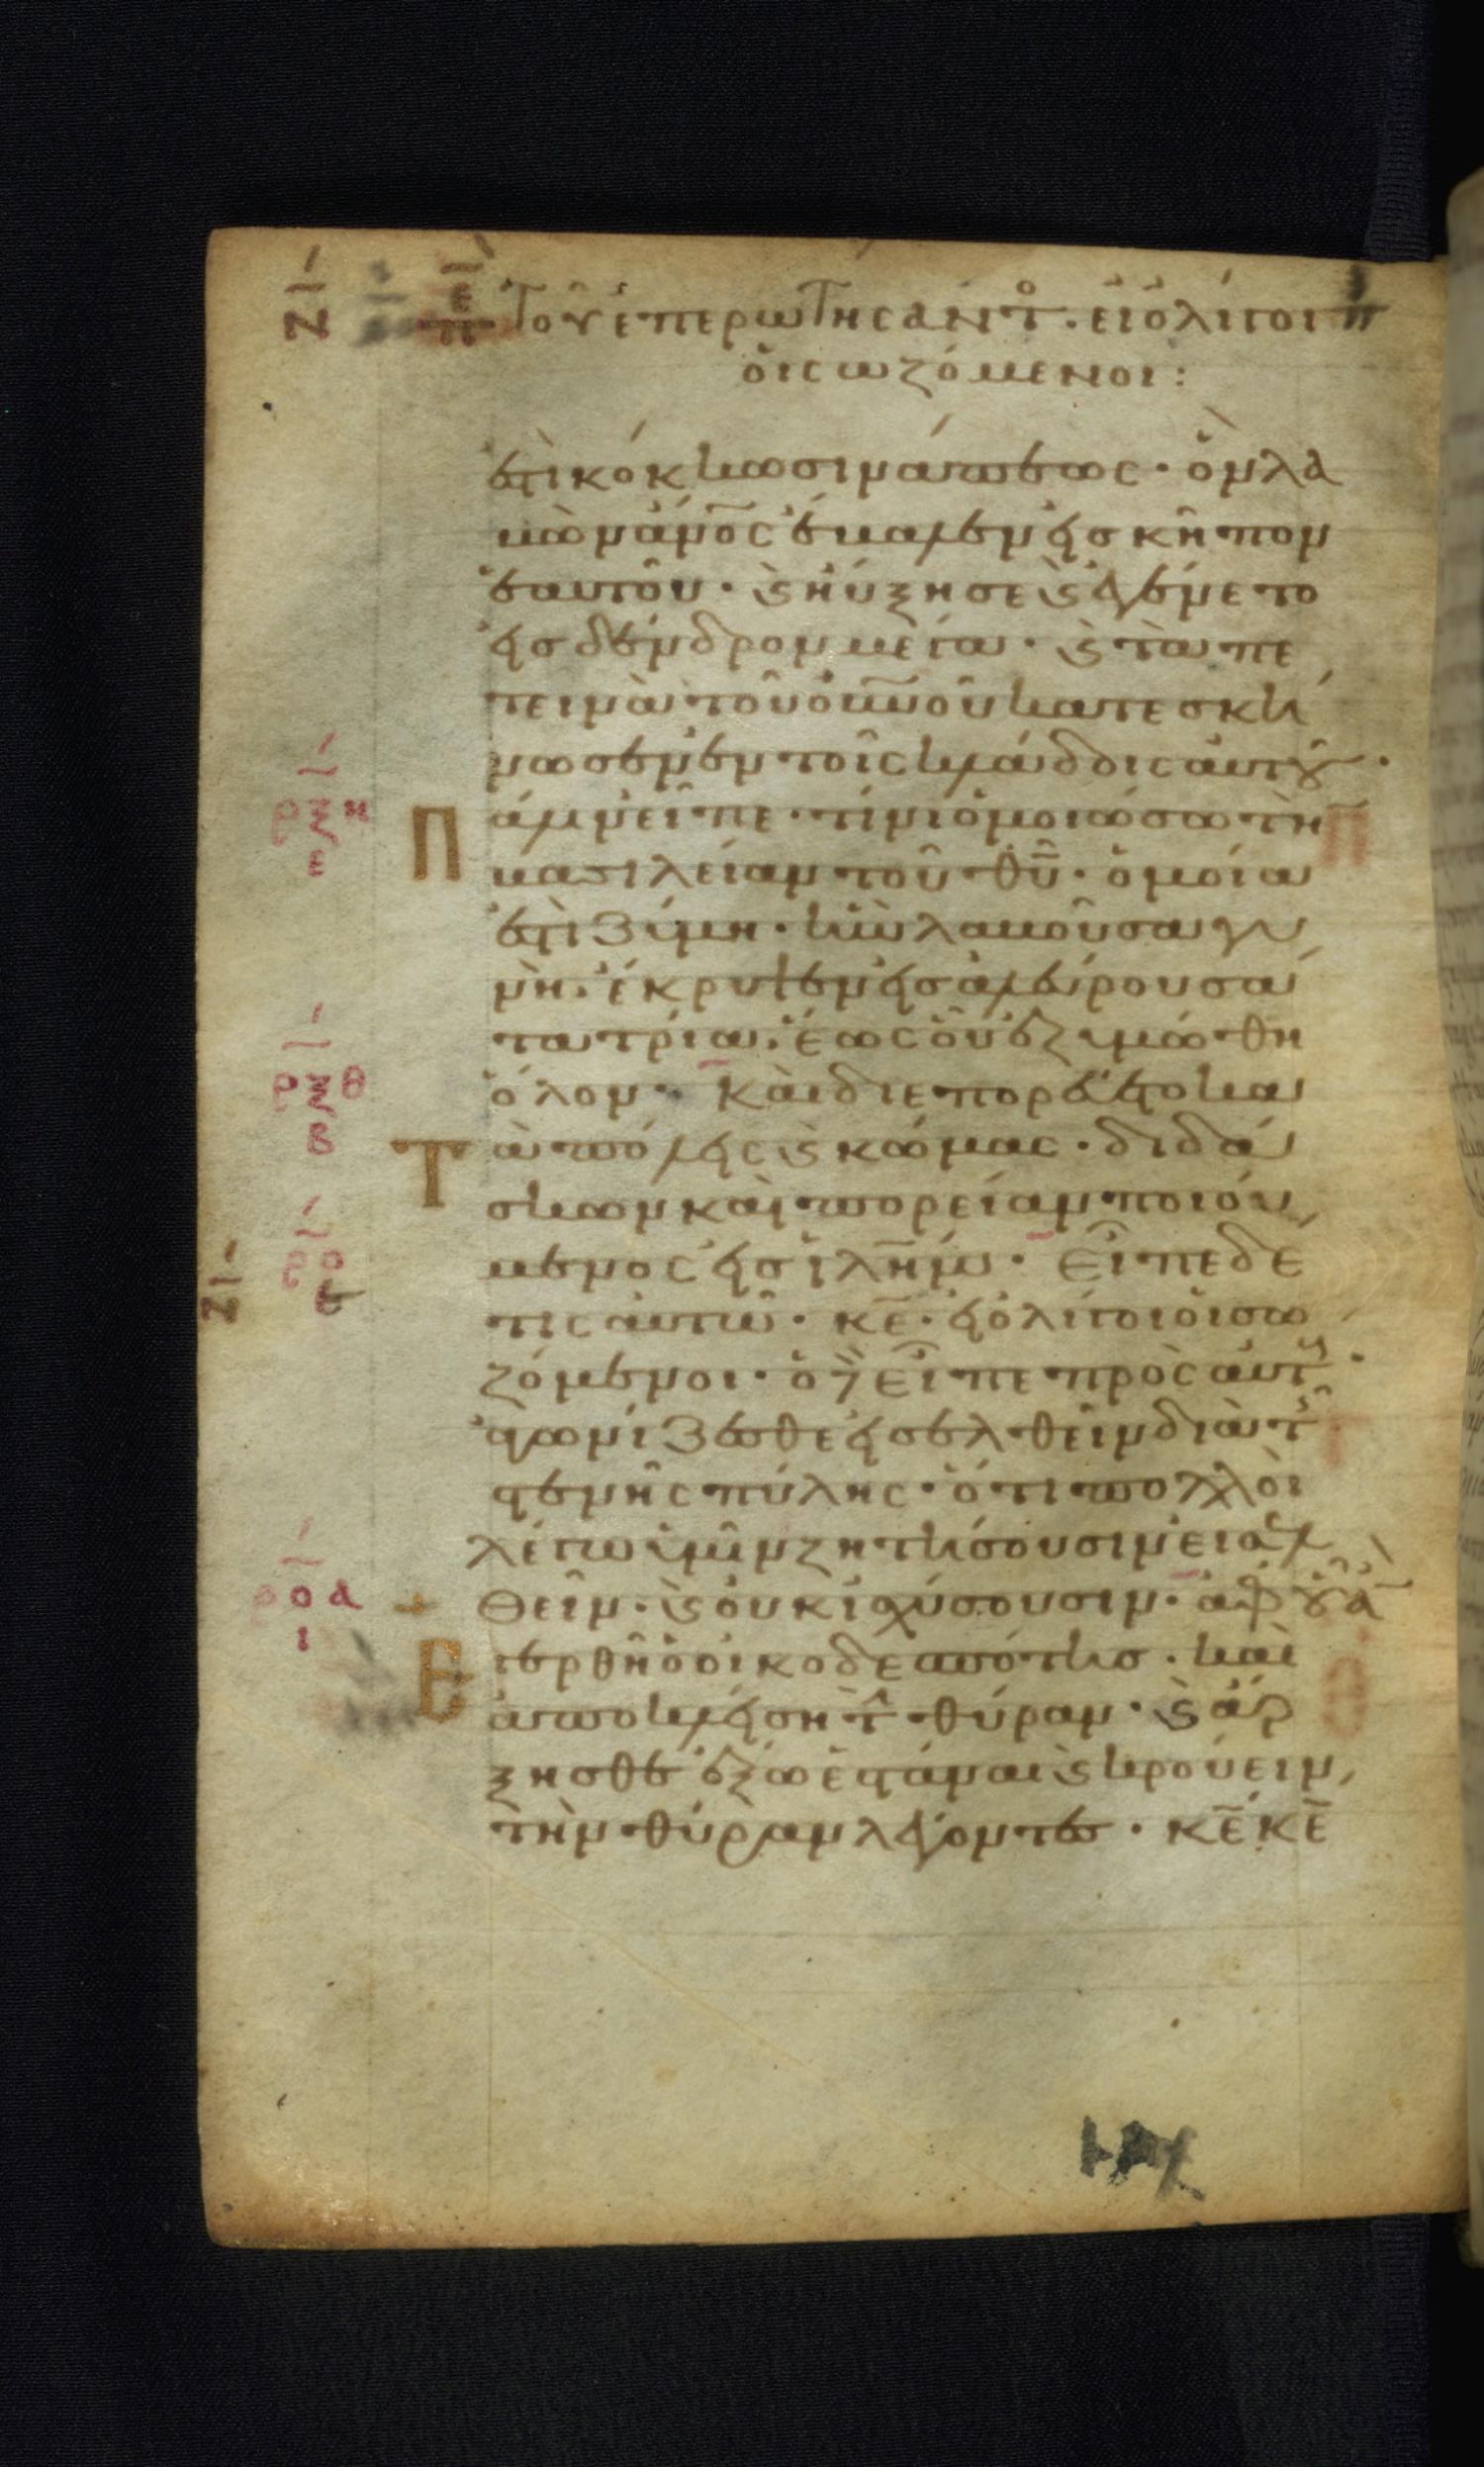 ΝΖ
πε Τοῦ ἐπερωτήσαντο. εἰ ὀλίγοι
ὁι σωζόμενοι:
ἐστὶ κόκκω σινάπεως. ὃν λα
βὼν ἀνο̅ς̅ ἔβαλεν εἰσ κῆπον
ἑαυτοῦ. ϛ ηὔξησε ϛ ἐγένετο
εἰσ δένδρον μέγα. ϛ τὰ πε
τεινὰ τοῦ οὐνοῦ κατεσκή
νωσεν ἐν τοῖς κλάδοις αὐτοῦ.
ρξη
ε
Πάλιν εἶπε. τίνι ὁμοιώσω τὴ
βασιλείαν τοῦ θυ̅. ὁμοία
ἐστὶ ζύμη. ἣν λαβοῦσα γυ
νὴ. ἔκρυψεν εἰσ ἀλεύρου σά
τα τρία. ἕως οὗ ἐζυμώθη
ρξθ
β
ὅλον. Καὶ διεπορεύετο κα
Τὰ πόλεις ϛ κώμας. διδά
σκων καὶ πορείαν ποιού
ρο
μενος εἰσ ἱλη̅μ̅. Εἶπε δέ
τις αὐτῶ. κε̅. εἰ ὀλίγοι οἱ σω
ζόμενοι. ὁ δὲ εἶπε πρὸς αὐτούς.
ἀγωνίζεσθε εἰσελθεῖν διὰ τῆς
στενῆς πύλης. ὅτι πολλοὶ
λέγω ὑμῖν ζητήσουσιν εἰσελ
ροα
ι
θεῖν. ϛ οὐκ ἰσχύσουσιν. ἀφ οὗ ἂν
Ἐγερθῆ ὁ οἰκοδεσπότησ. καὶ
ἀποκλείση τὴν θύραν. ϛ ἄρ
ξησθε ἔξω ἑστάναι ϛ κρούειν
τὴν θύραν λέγοντες. κε̅ κε̅